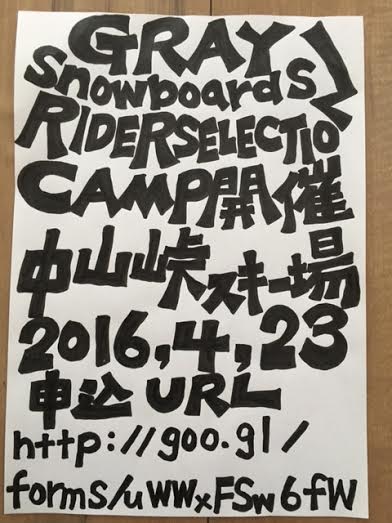 GRAY
Snowboards
RIDERSELECTION
CAMP開催
中山峠スキー場
2016,4,23
申込 URL
http://goo.gl/
forms/uWWxFSw6fW